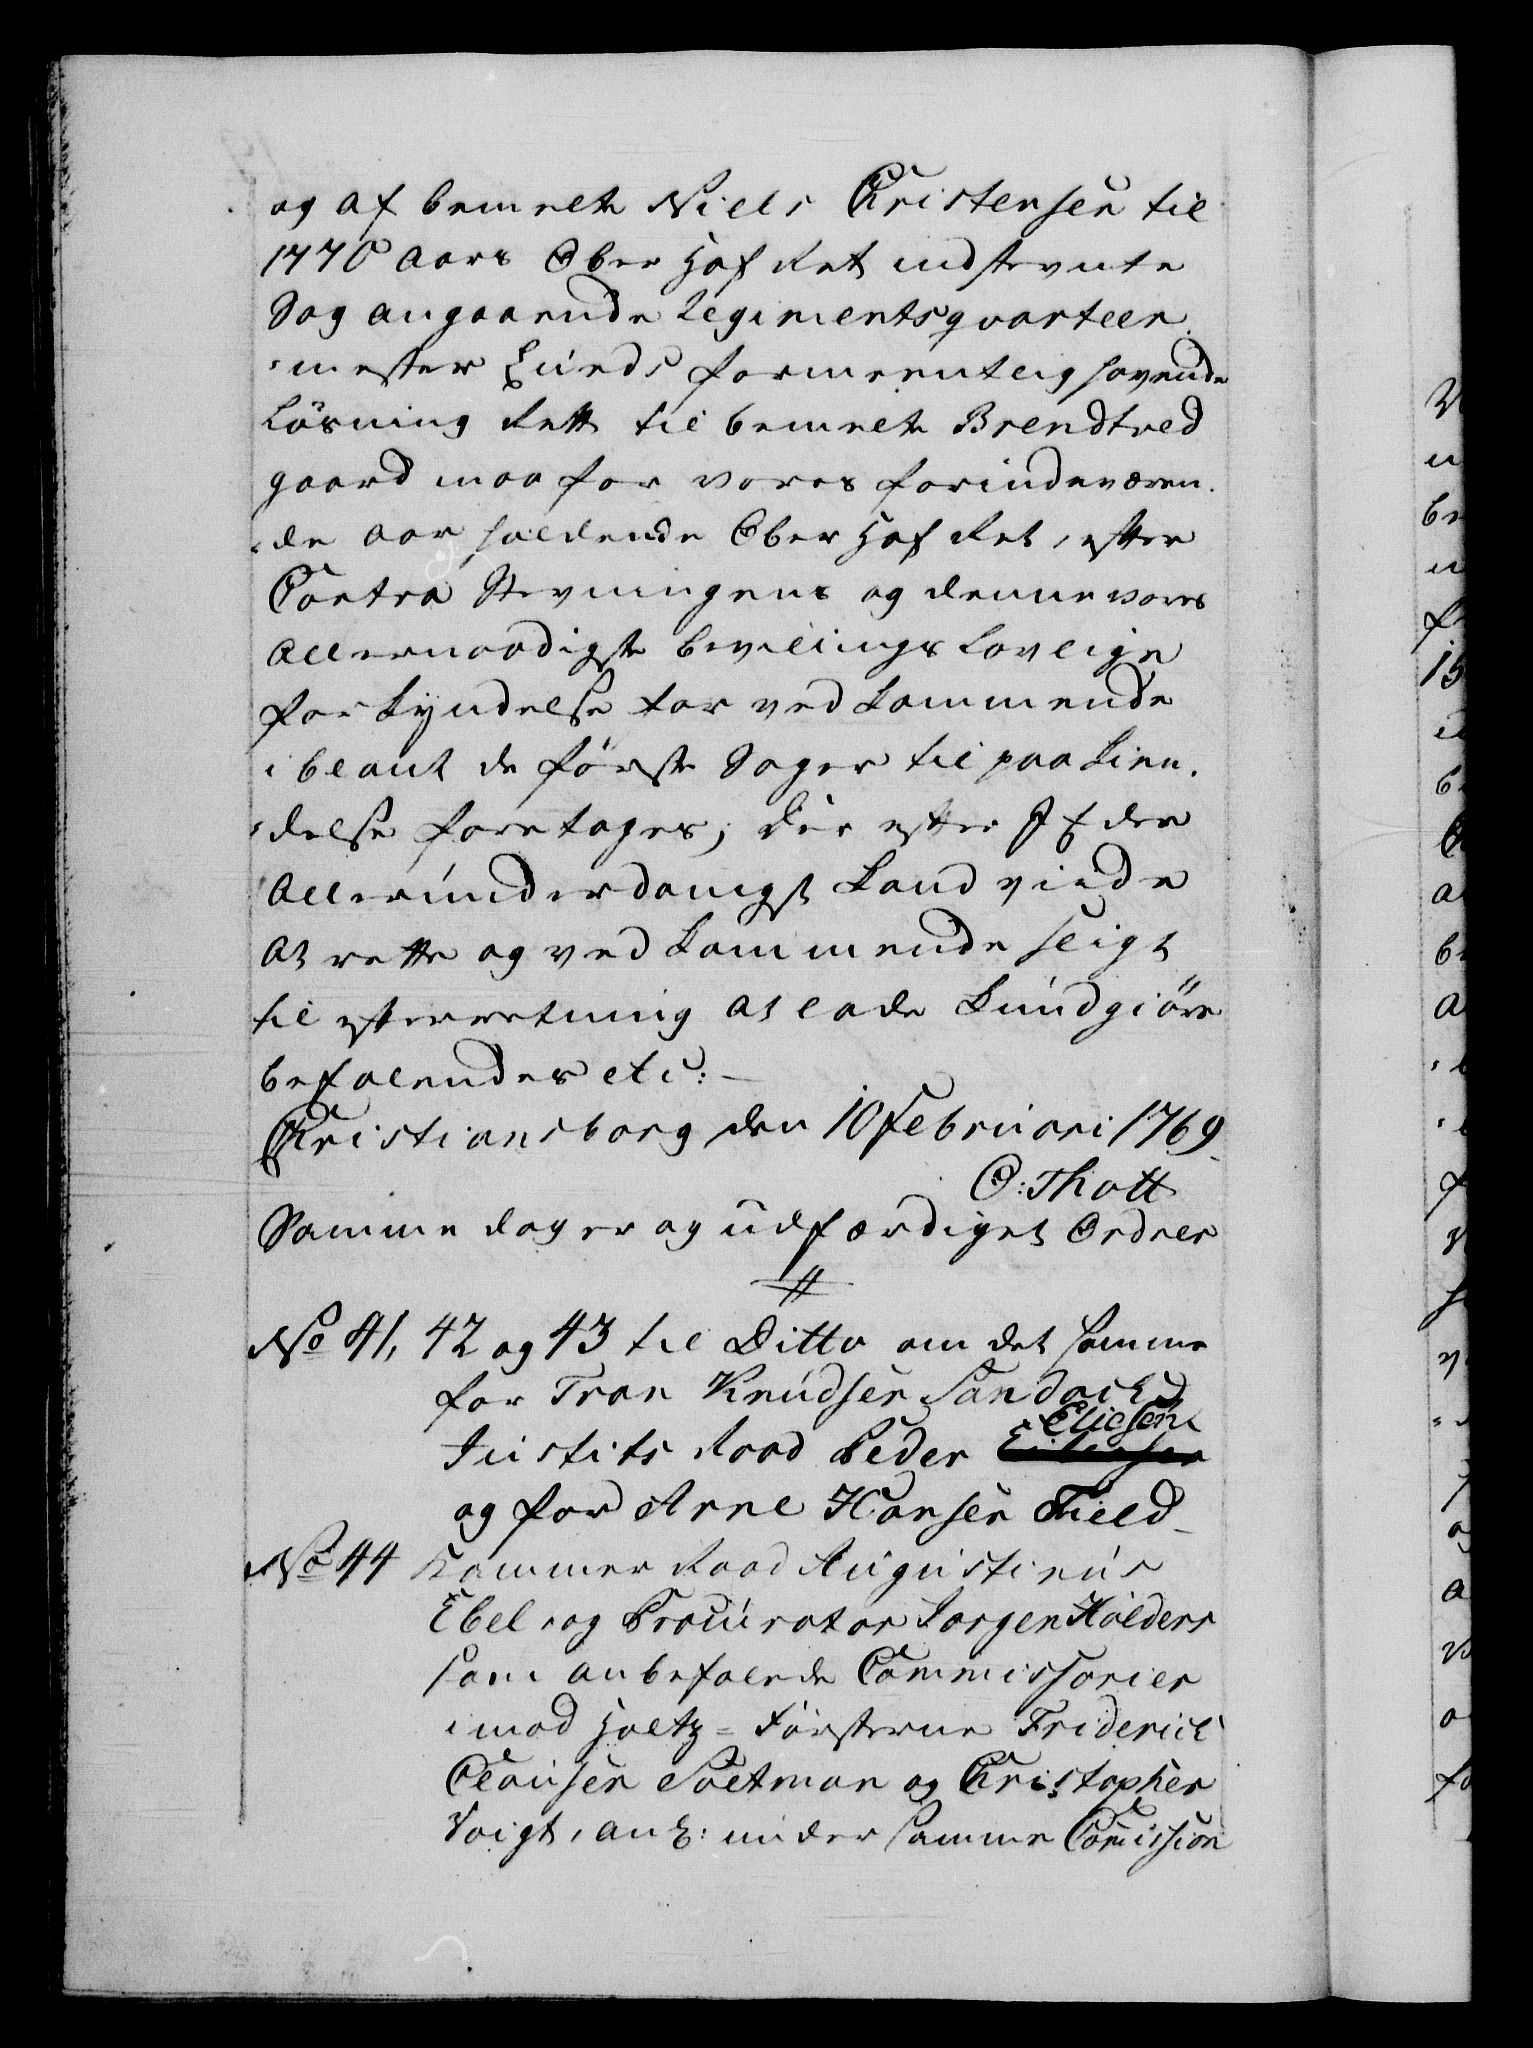 og af bemelte Niels Christensen til
1770 Aars Ober Hof Ret indstevnte
Sag angaaende Regimentsqvarteer
mester Lunds formeentlig havende
Løsning Rett til bemelte Brendtved
gaard maa for vores forindeværen-
de Aar holdende Ober Hof Ret, efter
Contra Stevningens og denne vores
Allernaadigste bevilings Lovlige
forkyndelse for vedkommende
iblant de første Sager til paakien-
delse foretages; Der efter I Eder
Allerunderdanigst Land viide
At rette og vedkommende sligt
til efterretning At lade Kundgiøre
befalendes etc:
Christiansborg den 10 Februari 1769
O: Thott
Samme dag er og udfærdiget Ordrer
No 41, 42 og 43 til Ditto om det samme
for Knudsen
Justits Raad Peder Eliesen
og for Arne Hansen Field
No 44 Kammer Raad Augustinus
Ebel, og Procurator Jørgen Holdern
som anbefalede Commissarier
imod Holtz-Førsterne Friderich
Clausen Soetman og Christopher
Voigt, anl: under samme Comission